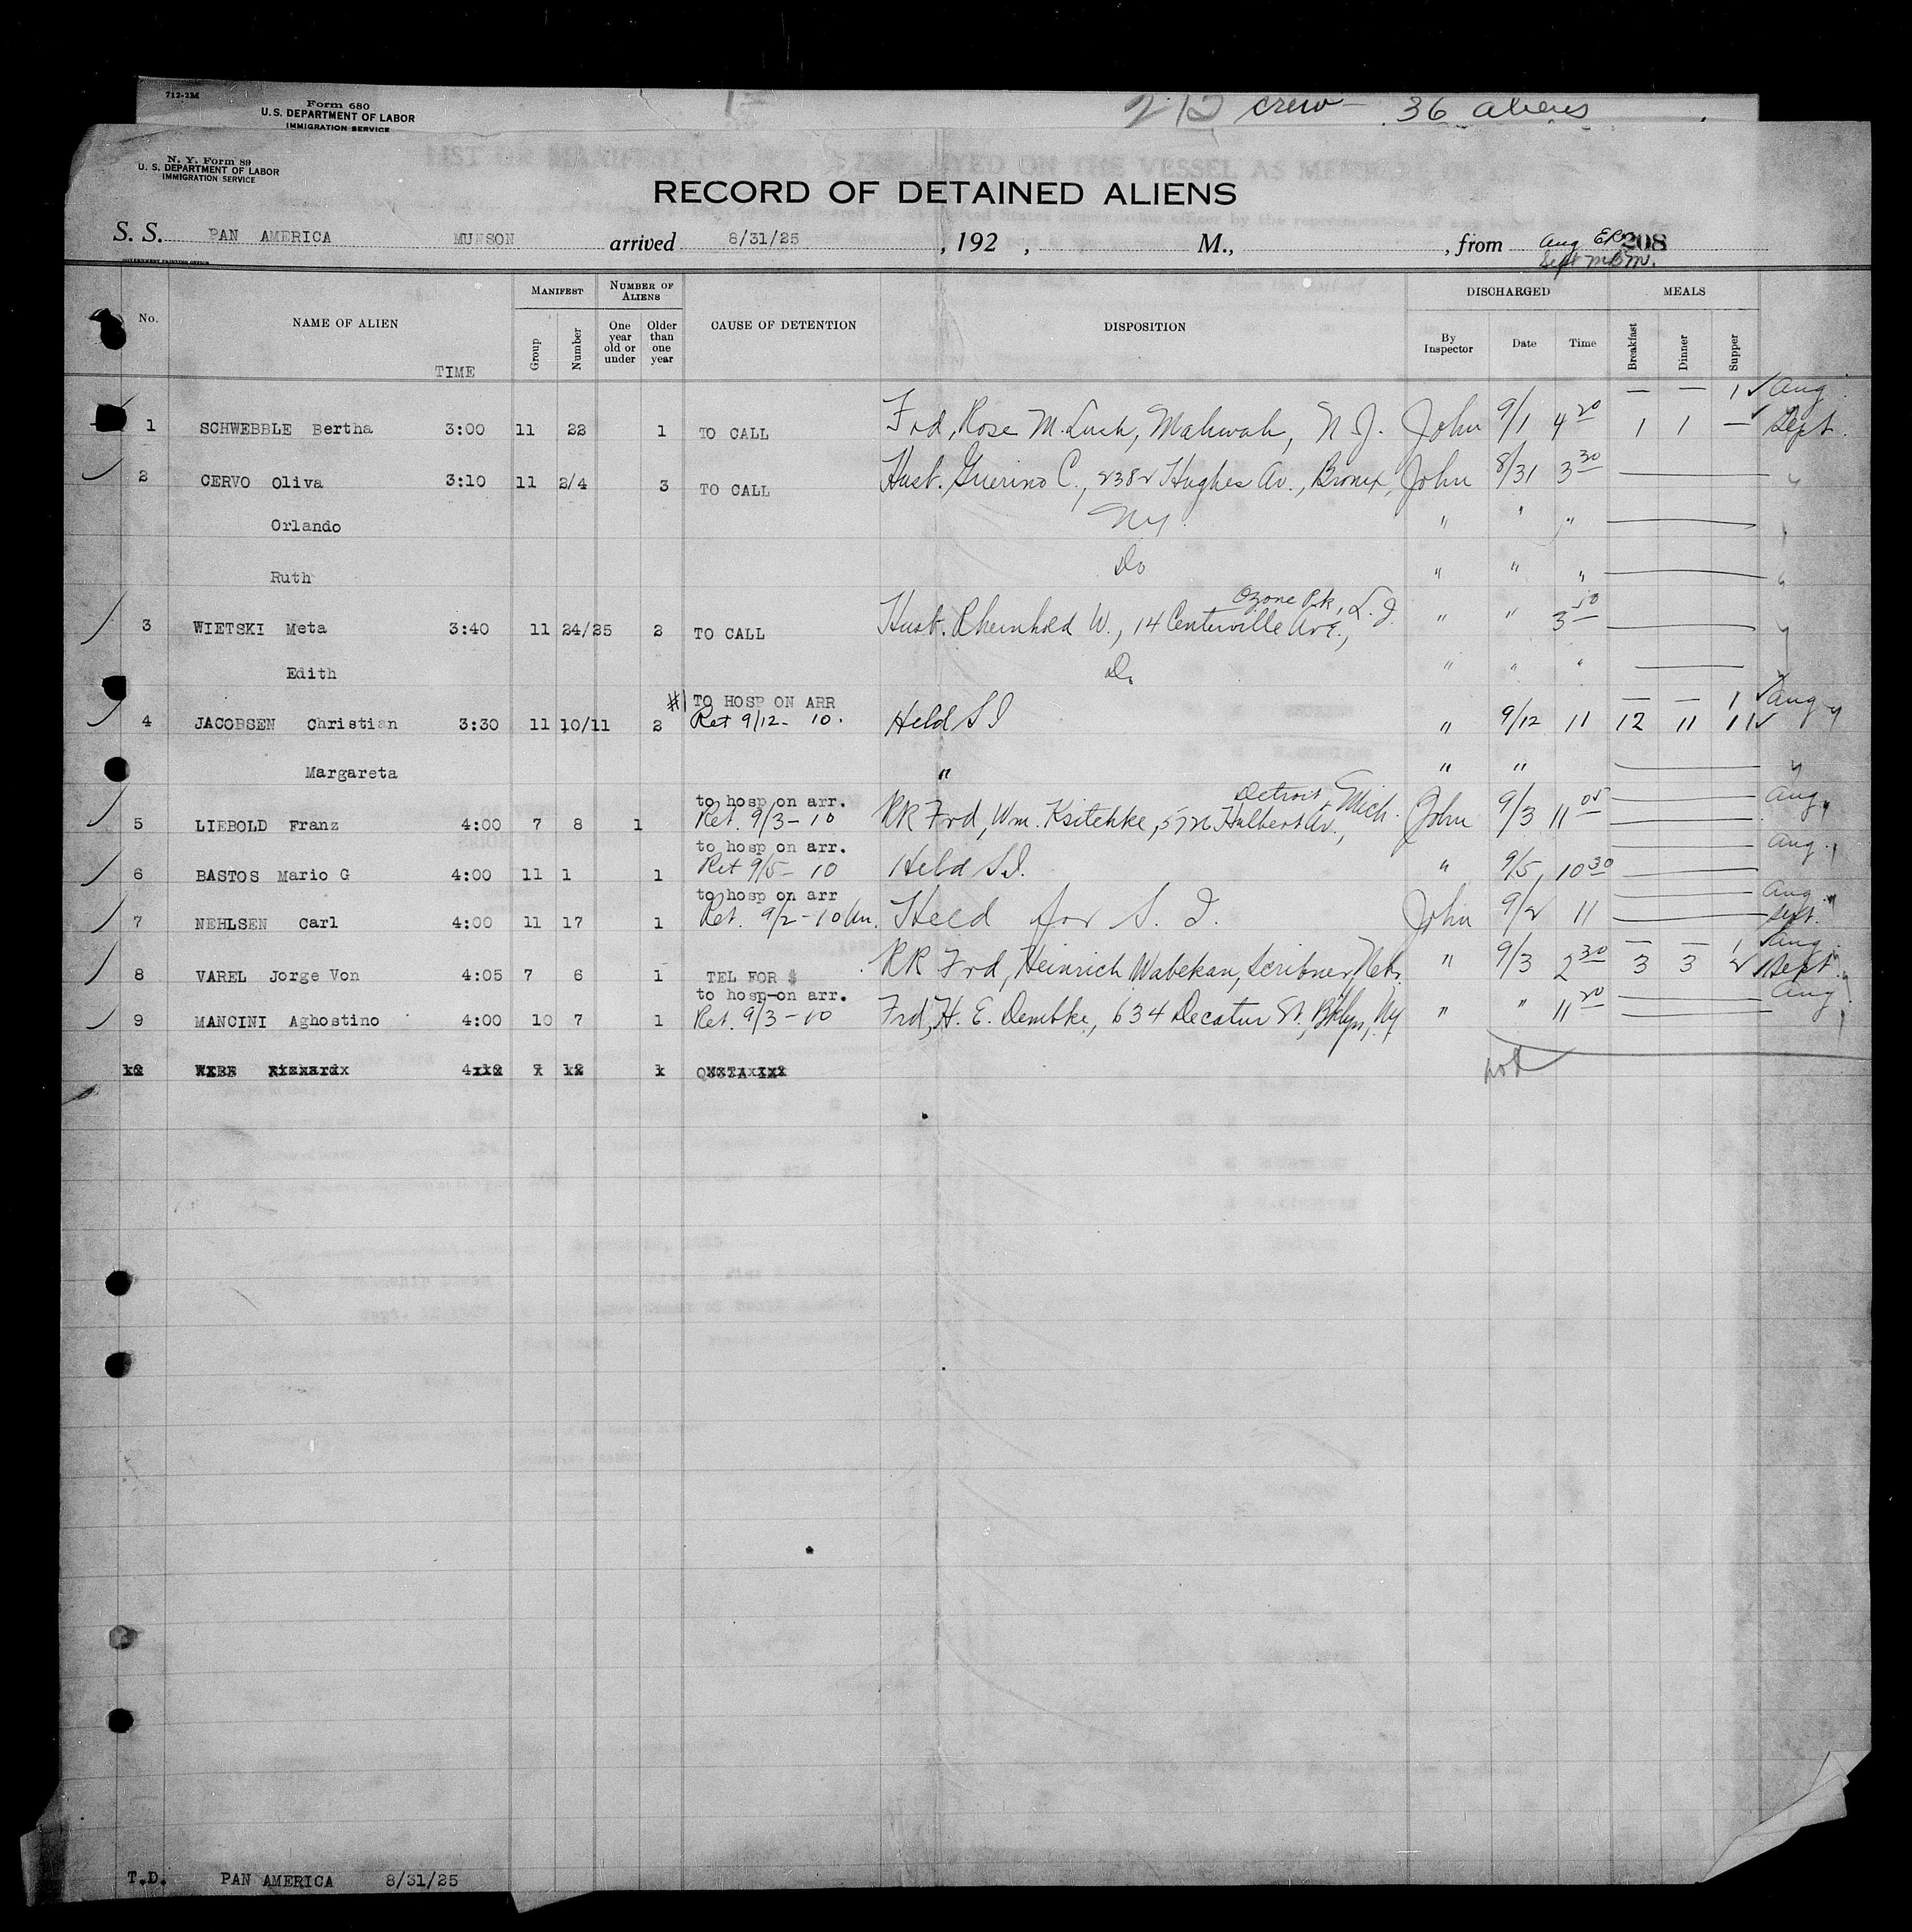 712-2M
Form 680
U.S. DEPARTMENT OF LABOR
IMMIGRATION SERVICE
212 crew - 36 aliens
N. Y. Form 89
U. S. DEPARTMENT OF LABOR
IMMIGRATION SERVICE
RECORD OF DETAINED ALIENS
S. S. PAN AMERICA MUNSON arrived 8/31/25 , 192 , M., , from Aug 208
Sept
GOVERNMENT PRINTING OFFICE
No. NAME OF ALIEN TIME MANIFEST Group Number NUMBER OF ALIENS One year old or under Older than one year CAUSE OF DETENTION DISPOSITION DISCHARGED By Inspector Date Time MEALS Breakfast Dinner Supper
— — 1 ✓ Aug
1 SCHWEBBLE Bertha 3:00 11 22 1 TO CALL Frd, Rose M. Luck, Mahwah, N. J. John 9/1 4 20 1 1 — ✓ Sept.
2 CERVO Oliva 3:10 11 2/4 3 TO CALL Husb. Guerino C., 2382 Hughes Av., Bronx, John 8/31 3 30 —
Orlando NY. " " " —
Ruth Do " " " —
Ozone Pk, L. I.
3 WIETSKI Meta 3:40 11 24/25 2 TO CALL Husb. Rheinhold W., 14 Centerville Ave., " " 3 50 —
Edith Do " " " —
#1 TO HOSP ON ARR — — 1 ✓ Aug
4 JACOBSEN Christian 3:30 11 10/11 2 Ret 9/12 - 10. Held S I " 9/12 11 12 11 11 ✓
Margareta " " " —
to hosp on arr. Detroit, Mich. — Aug
5 LIEBOLD Franz 4:00 7 8 1 Ret. 9/3 - 10 RR Frd, Wm. Ksitchke, Av., John 9/3 11 05 —
to hosp on arr. — Aug.
6 BASTOS Mario G 4:00 11 1 1 Ret 9/5 - 10 Held S.I. " 9/5 10 30 —
to hosp on arr — Aug
7 NEHLSEN Carl 4:00 11 17 1 Ret. 9/2 - 10 am. Held for S. I. John 9/2 11 — Sept.
— — 1 ✓ Aug.
8 VAREL Jorge Von 4:05 7 6 1 TEL FOR $ RR Frd, Heinrich Wabekan, Scribner, Neb. " 9/3 2 30 3 3 2 ✓ Sept.
to hosp-on arr. — Aug
9 MANCINI Aghostino 4:00 10 7 1 Ret. 9/3 - 10 Frd, H. E. Dembke, 634 Decatur St, Bklyn, NY " " 11 20 —
T.D. PAN AMERICA 8/31/25